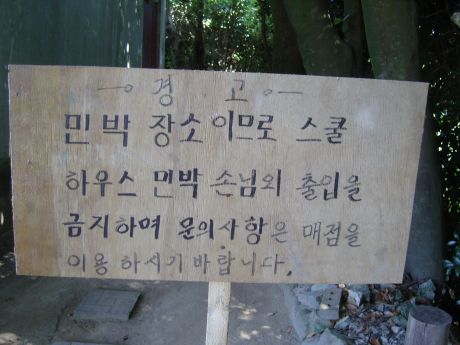 경 고
민박 장소이므로 스쿨
하우스 민박 손님외 출입을
금지하며 문의사항은 매점을
이용하시기바랍니다.